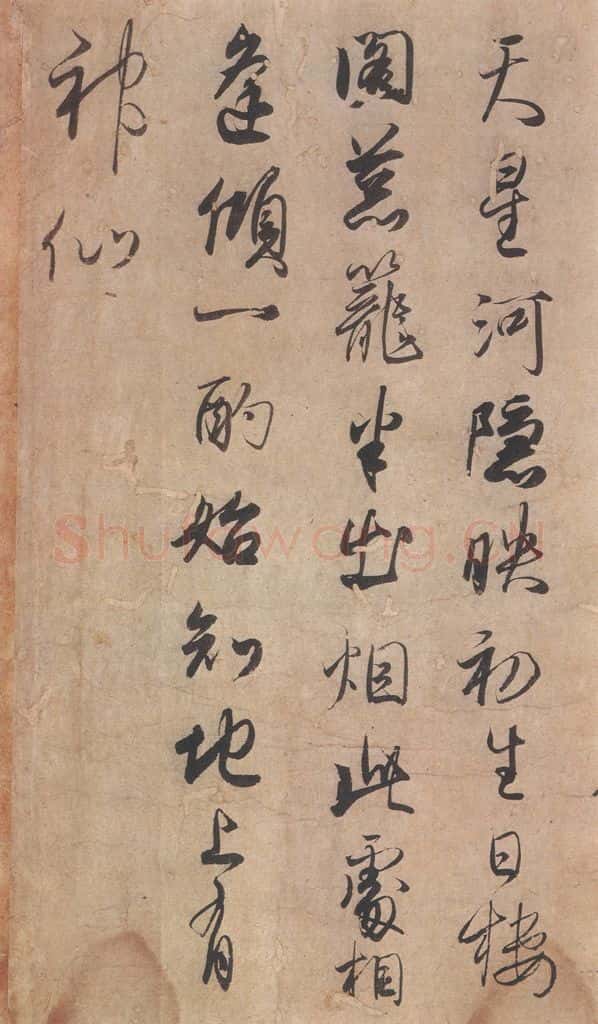 天星河隱映初生日樓
閣葱籠半出烟此處相
逢傾一酌始知地上有
神仙
Shufawang.CN